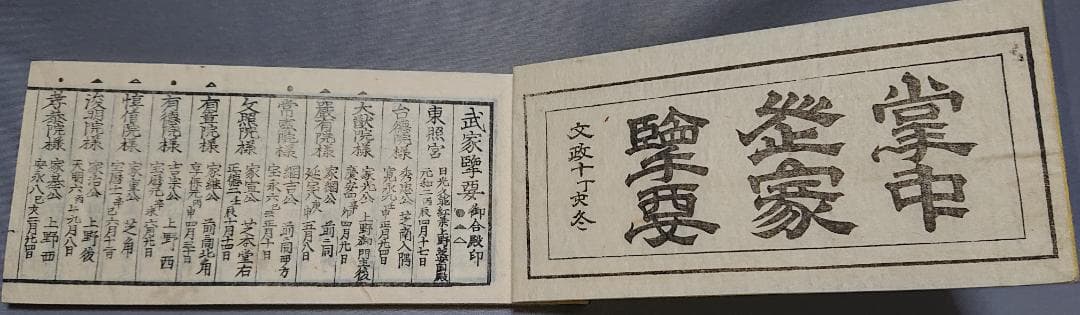 掌中
武家
擥要
文政十丁亥冬
武家擥要 御合殿印
東照宮
元和二丙辰四月十七日
台徳院様
秀忠公 芝南入隅
寛永九壬申正月廿四日
大猷院様
家光公 上野御門主後
慶安四
嚴有院様
家綱公 前ニ同
延宝八庚申五月八日
常憲院様
綱吉公 前ノ南方
宝永六己丑正月十日
文照院様
家宣公 芝本堂右
正徳二壬辰十月十四日
有章院様
家継公 前ノ南北角
享保元丙申四月三十日
有徳院様
吉宗公 上野ノ西
宝暦元辛未六月廿日
惇信院様
家重公 芝ノ角
宝暦十一辛巳六月十二日
浚明院様
家治公 上野ノ後
天明六丙午九月八日
孝恭院様
家基公 上野ノ西
安永八己亥二月廿四日